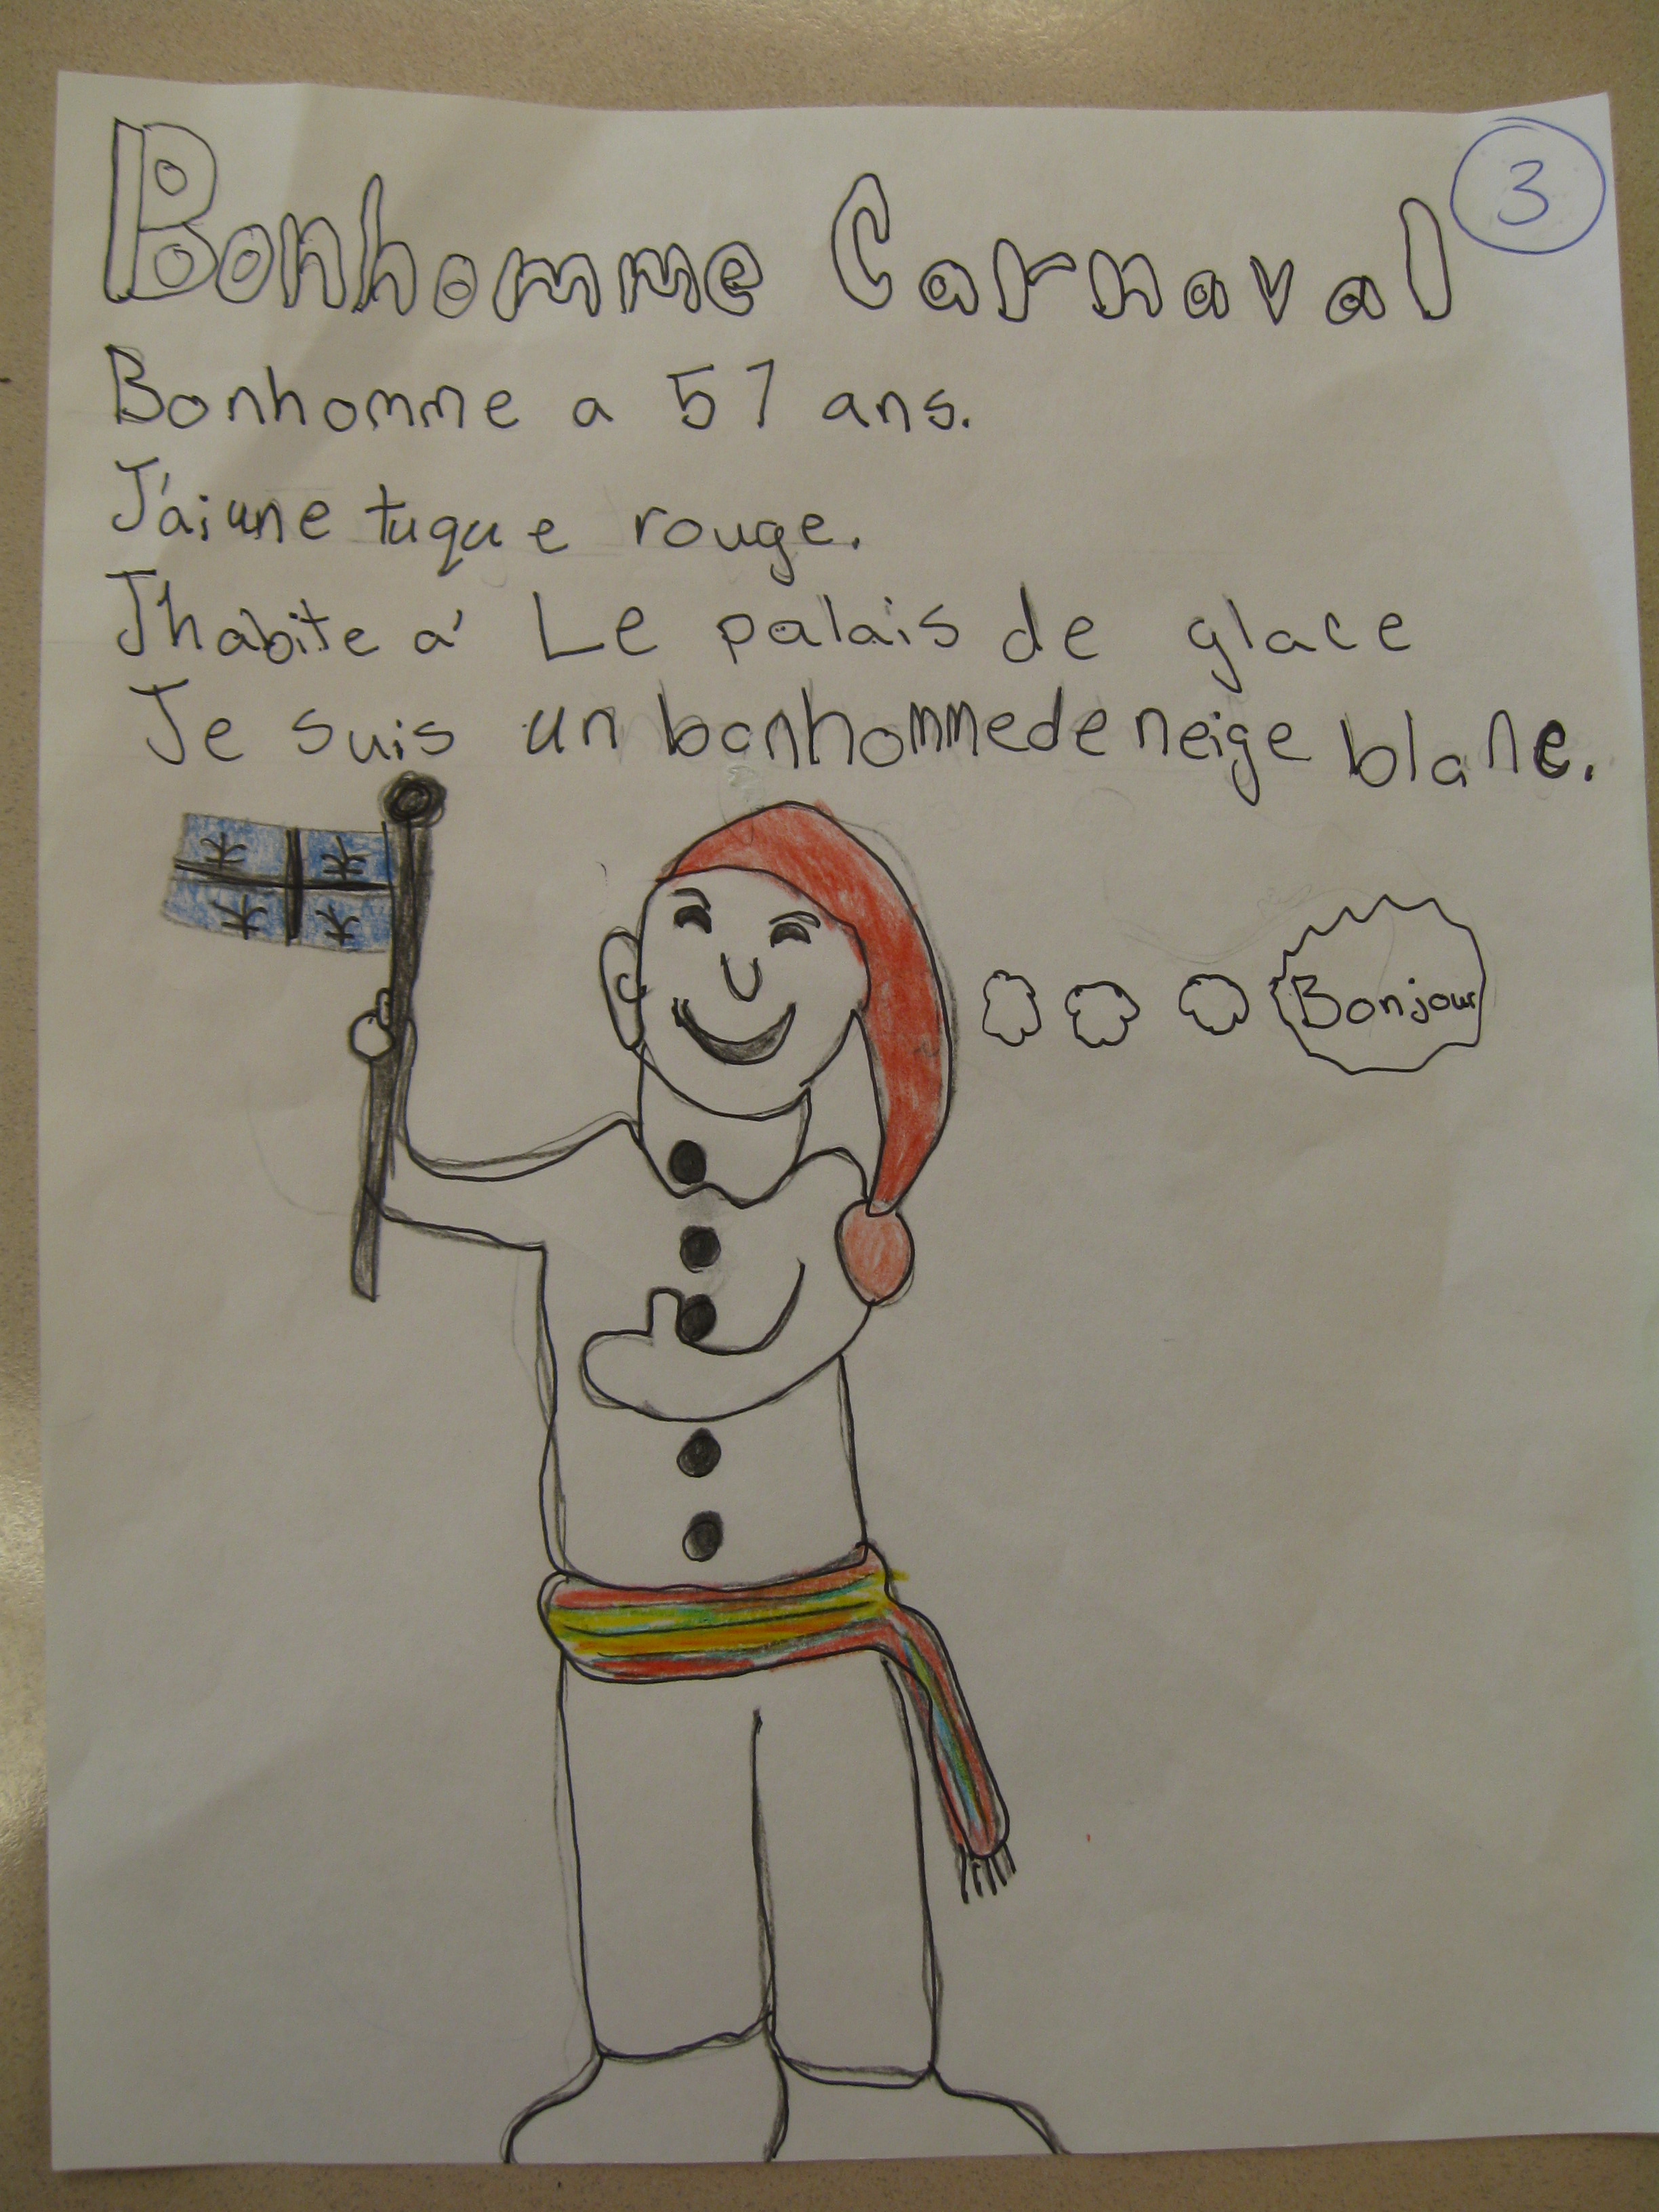 3
Bonhomme Carnaval
Bonhomme a 57 ans.
J'ai une tuque rouge.
J'habite á Le palais de glace
Je suis un bonhomme de neige blanc.
Bonjour